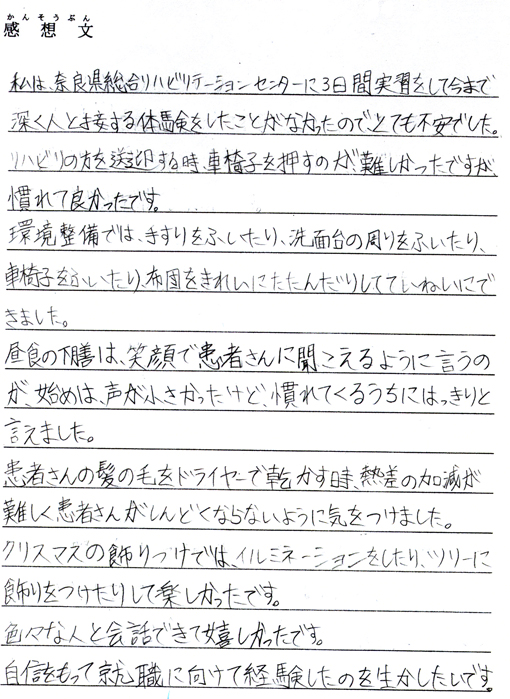 かんそうぶん
感想文
私は、奈良県総合リハビリテーションセンターに3日間実習をして今まで
深く人と接する体験をしたことがなかったのでとても不安でした。
リハビリの方を送迎する時、車椅子を押すのが、難しかったですが、
慣れて良かったです。
環境整備では、きすりをふいたり、洗面台の周りをふいたり、
車椅子をふいたり、布団をきれいにたたんだりしてていねいにで
きました。
昼食の下膳は、笑顔で患者さんに聞こえるように言うの
が、始めは、声が小さかったけど、慣れてくるうちにはっきりと
言えました。
患者さんの髪の毛をドライヤーで乾かす時、熱差の加減が
難しく患者さんがしんどくならないように気をつけました。
クリスマスの飾りつけでは、イルミネーションをしたり、ツリーに
飾りをつけたりして楽しかったです。
色々な人と会話できて嬉しかったです。
自信をもって就職に向けて経験したのを生かしたいです。